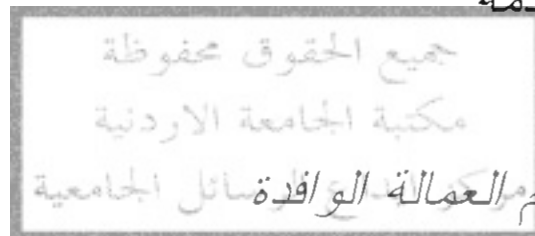 جميع الحقوق محفوظة
مكتبة الجامعة الاردنية
مركز الرسائل الجامعية
العمالة الوافدة